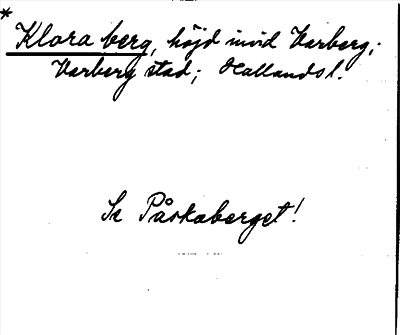 *
Klora berg, höjd invid Varberg;
Varberg stad; Hallands l.
Se Påskaberget!